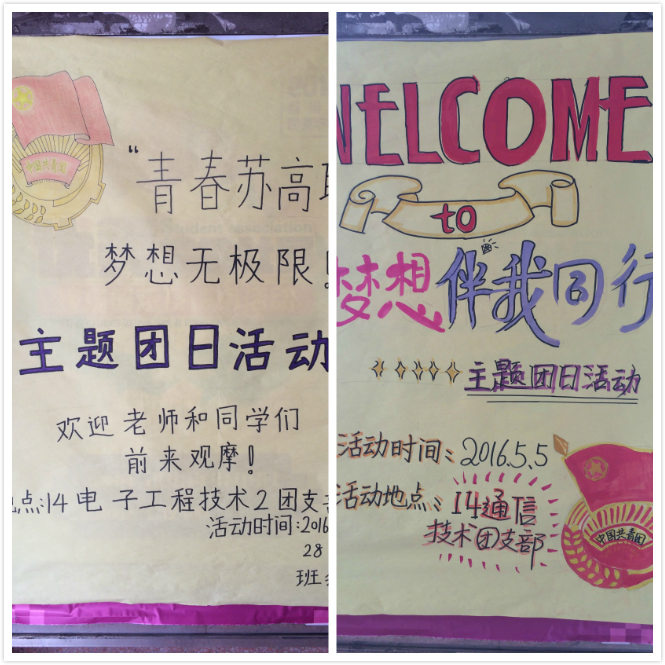 中国共青团
"青春苏高职
梦想无极限！
主题团日活动
欢迎老师和同学们
前来观摩！
地点:14电子工程技术2团支
活动时间:2016
28
班
WELCOME
to
梦想伴我同行
主题团日活动
活动时间:2016.5.5
活动地点:14通信
技术团支部
中国共青团